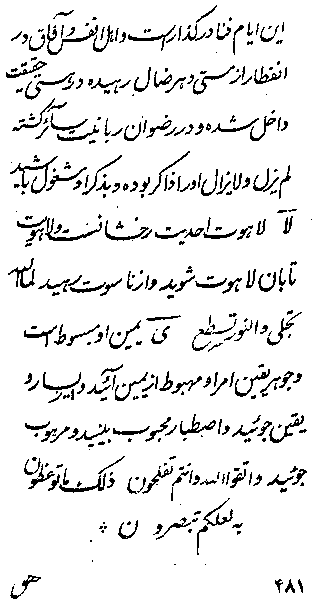 این ایام فنا در گذار است و اهل انفس و آفاق در
انفطار از مستی دهر ضال رهیده در مستی حقیقت
داخل شده و در رضوان ربانیت سائر گشته
لم یزل و لایزال او را ذاکر بوده و بذکر او مشغول باشید
لا لاهوت احدیت رخشانست و لاهوت
تابان لاهوت شوید و از ناسوت رهید
تجلی و النور تسطع ی یمین او مبسوط است
و جوهر یقین امر او مهبوط از یمین آئید و
یقین جوئید و اصطبار محبوب ببینید و مرهوب
جوئید و اتقوا الله و انتم تفلحون ذلک ما توعظون
به لعلکم تبصرون ن
۴۸۱ هق